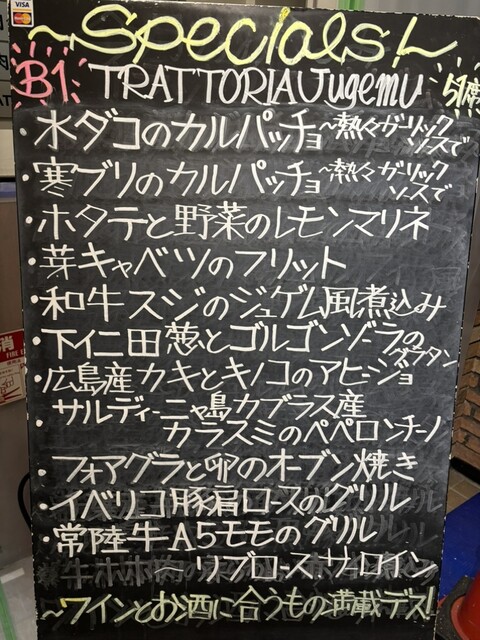 VISA
MasterCard
~Specials!~
B1 TRATTORIA Jugemu 51席
・水ダコのカルパッチョ~熱々ガーリックソースで
・寒ブリのカルパッチョ~熱々ガーリックソースで
・ホタテと野菜のレモンマリネ
・芽キャベツのフリット
・和牛スジのジュゲム風煮込み
・下仁田葱とゴルゴンゾーラのグラタン
・広島産カキとキノコのアヒージョ
・サルディーニャ島カブラス産
カラスミのペペロンチーノ
・フォアグラと卵のオーブン焼き
・イベリコ豚肩ロースのグリル
・常陸牛A5モモのグリル
~リブロース、サーロイン
~ワインとお酒に合うもの満載デス!